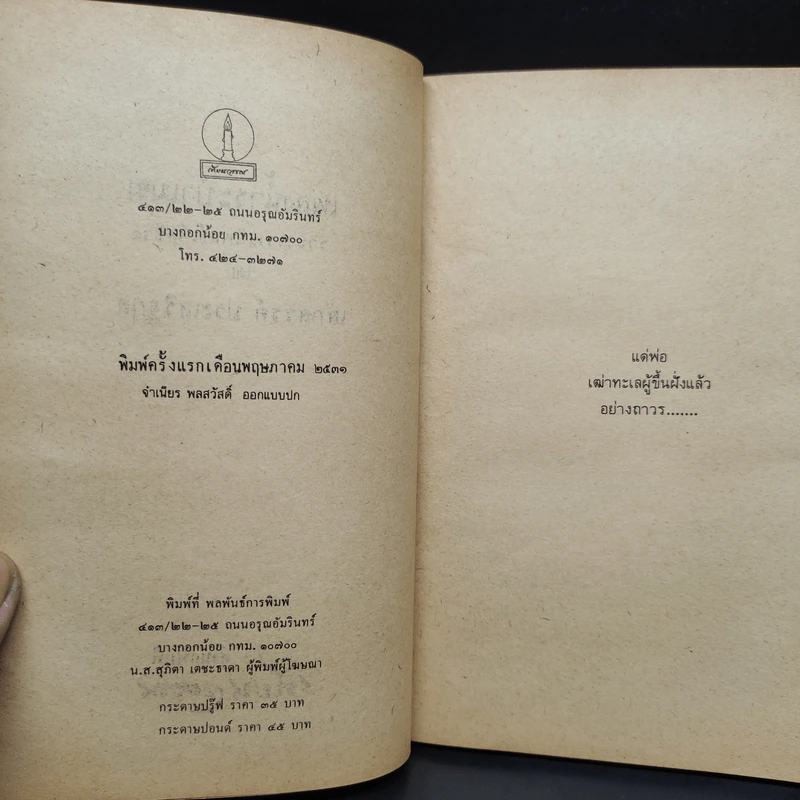 ๔๑๓/๒๒-๒๕ ถนนอรุณอัมรินทร์
บางกอกน้อย กทม. ๑๐๗๐๐
โทร. ๔๒๔-๓๒๗๑
พิมพ์ครั้งแรกเดือนพฤษภาคม ๒๕๓๑
จำเนียร พลสวัสดิ์ ออกแบบปก
พิมพ์ที่ พลพันธ์การพิมพ์
๔๑๓/๒๒-๒๕ ถนนอรุณอัมรินทร์
บางกอกน้อย กทม. ๑๐๗๐๐
น.ส.สุภิตา เตชะธาดา ผู้พิมพ์ผู้โฆษณา
กระดาษปรู๊ฟ ราคา ๓๕ บาท
กระดาษปอนด์ ราคา ๔๕ บาท
แด่พ่อ
เฒ่าทะเลผู้ขึ้นฝั่งแล้ว
อย่างถาวร.......